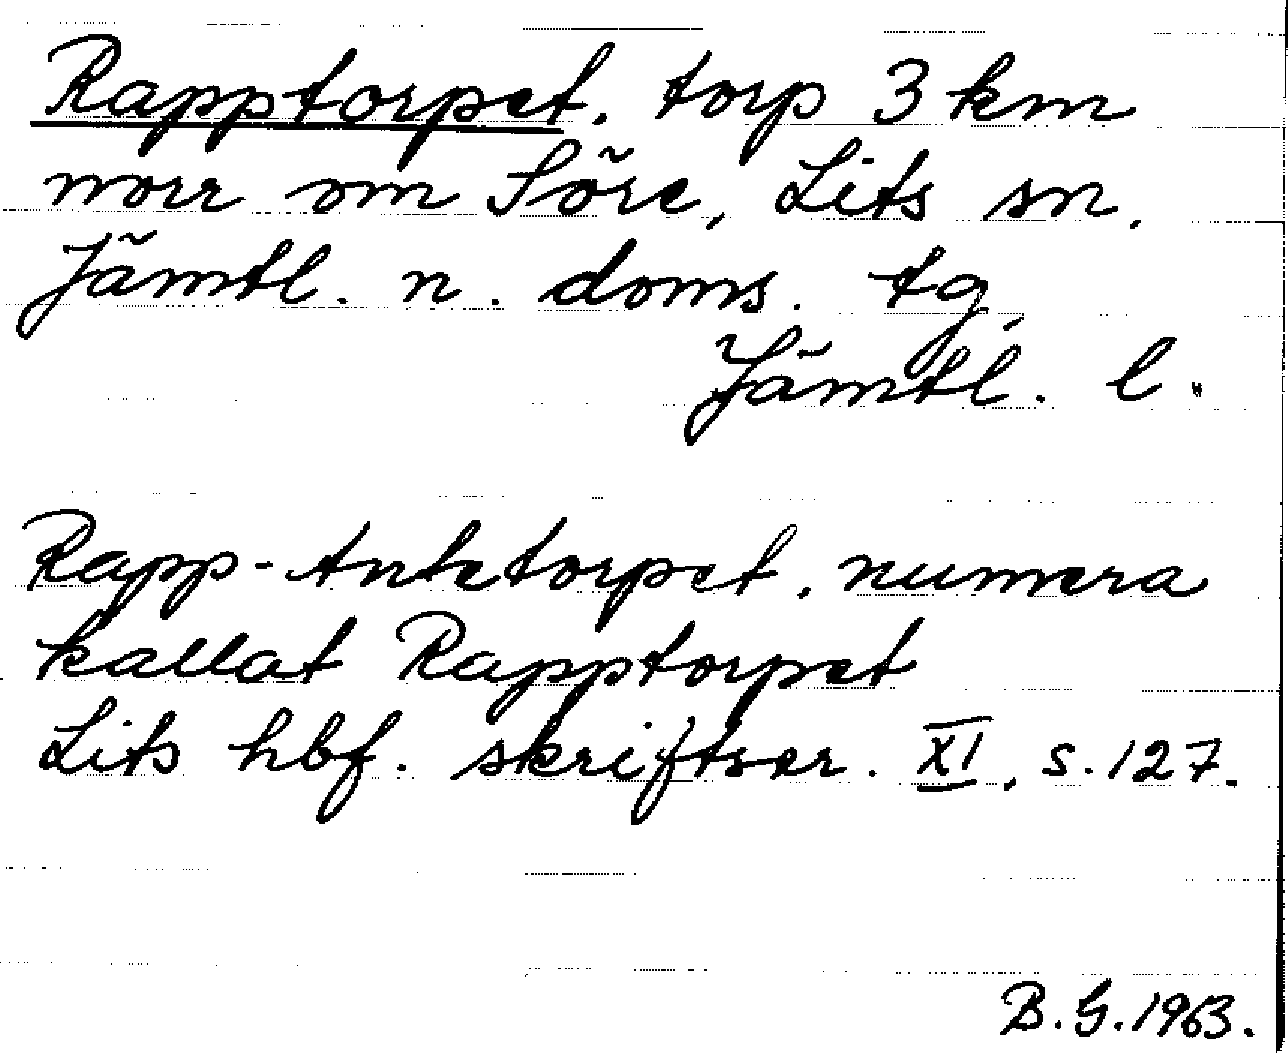 Rapptorpet. torp 3 km
norr om Söre, Lits sn.
Jämtl. n. doms. tg,
Jämtl. l.
Rapp-Antetorpet. numera
kallat Rapptorpet
Lits hbf. skriftser. XI, s. 127.
B. G. 1963.